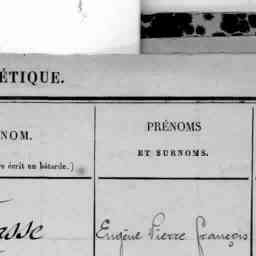 ÉTIQUE.
NOM.
PRÉNOMS
ET SURNOMS.
e écrit en bâtarde.)
asse
Eugène Pierre François